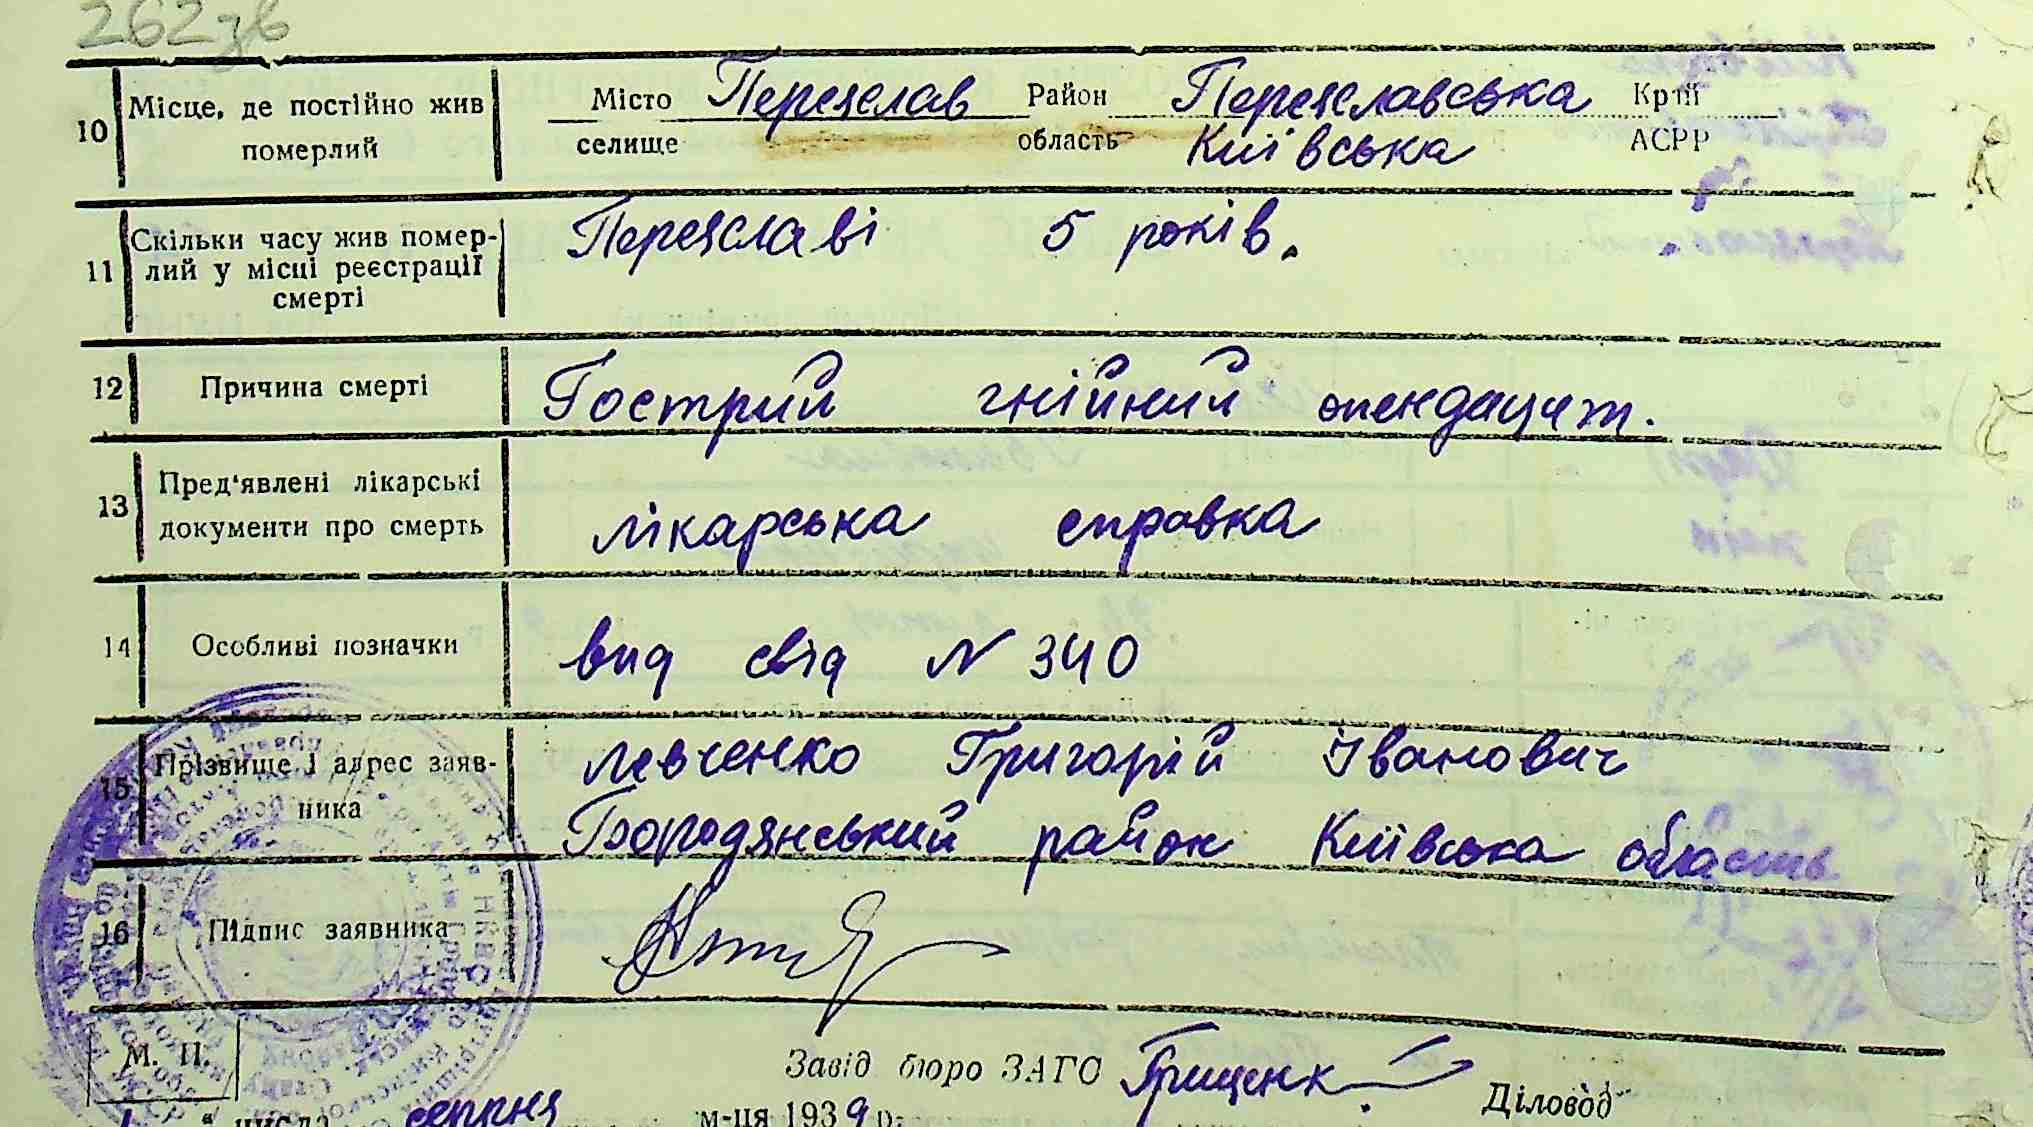 262зв
10 Місце, де постійно жив померлий Місто Переяслав Район Переяславська Край
селище область Київська АСРР
11 Скільки часу жив померлий у місці реєстрації смерті Переяславі 5 років.
12 Причина смерті Гострий гнійний апендацит.
13 Пред'явлені лікарські документи про смерть лікарська справка
14 Особливі позначки вид свід N 340
15 Прізвище і адрес заявника Левченко Григорій Іванович
Бородянський район Київська область
16 Підпис заявника
М. П.
Завід бюро ЗАГС Грищенк Діловод
числа серпня м-ця 1939 р.